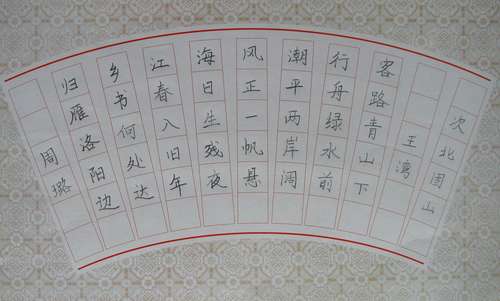 次北固山
王湾
客路青山下
行舟绿水前
潮平两岸阔
风正一帆悬
海日生残夜
江春入旧年
乡书何处达
归雁洛阳边
周璐